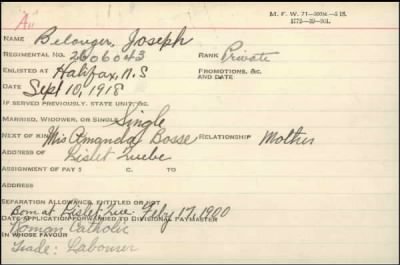 "A"
M. F. W. 71
1772-39-901.
NAME Belanger, Joseph
REGIMENTAL NO. 2606043 RANK Private
ENLISTED AT Halifax, N.S PROMOTIONS, &C. AND DATE
DATE Sept 10, 1918
IF SERVED PREVIOUSLY, STATE UNIT, &C.
MARRIED, WIDOWER, OR SINGLE Single
NEXT OF KIN Mrs Amanda Bosse RELATIONSHIP Mother
ADDRESS OF Lislet Quebec
ASSIGNMENT OF PAY $ C. TO
ADDRESS
SEPARATION ALLOWANCE, ENTITLED OR NOT
Born at Lislet Que. Feby 17, 1900
DATE APPLICATION FORWARDED TO DIVISIONAL PAYMASTER
Roman Catholic
IN WHOSE FAVOUR
Trade: Labourer